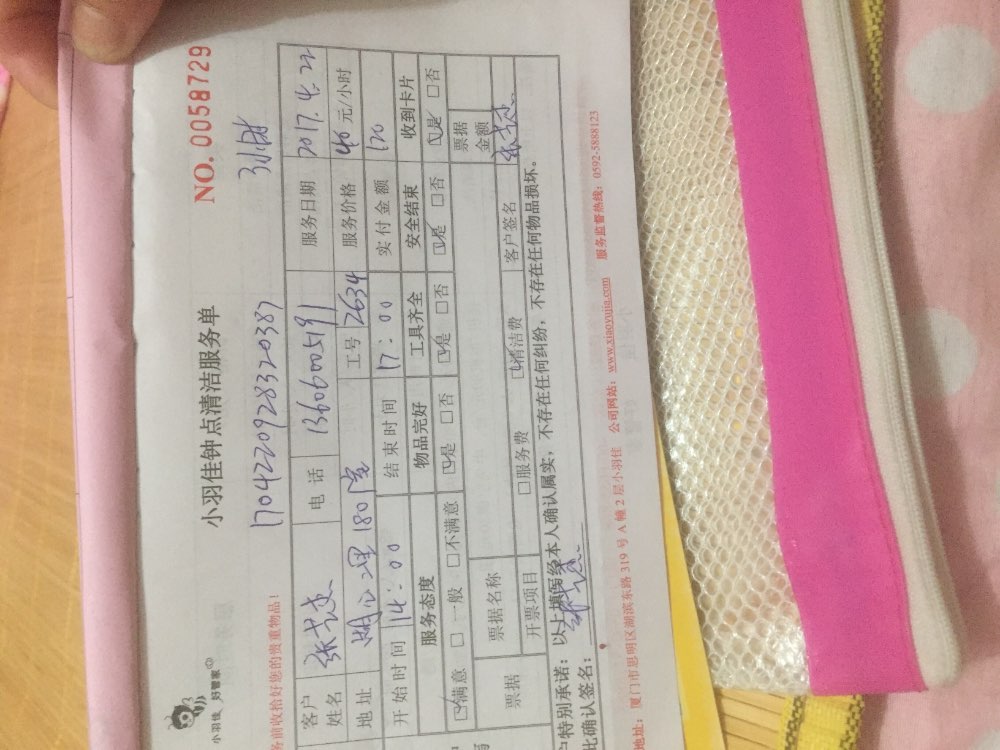 小羽佳 好管家
小羽佳钟点清洁服务单
NO. 0058729
务前收拾好您的贵重物品!
1704220928320387
客户姓名
电话 13606005191
服务日期 2017.4.22
地址
180室
工号 2634
服务价格 40 元/小时
开始时间 14:00
结束时间 17:00
实付金额 120
服务态度
物品完好
工具齐全
安全结束
收到卡片
☑满意 □一般 □不满意
☑是 □否
☑是 □否
☑是 □否
☑是 □否
票据
票据名称
票据金额
开票项目
□服务费
☑清洁费
客户签名
户特别承诺:以上填写经本人确认属实,不存在任何纠纷,不存在任何物品损坏。
此确认签名:
地址:厦门市思明区湖滨东路 319 号 A 幢 2 层小羽佳 公司网站:www.xiaoyujia.com 服务监督热线:0592-5888123